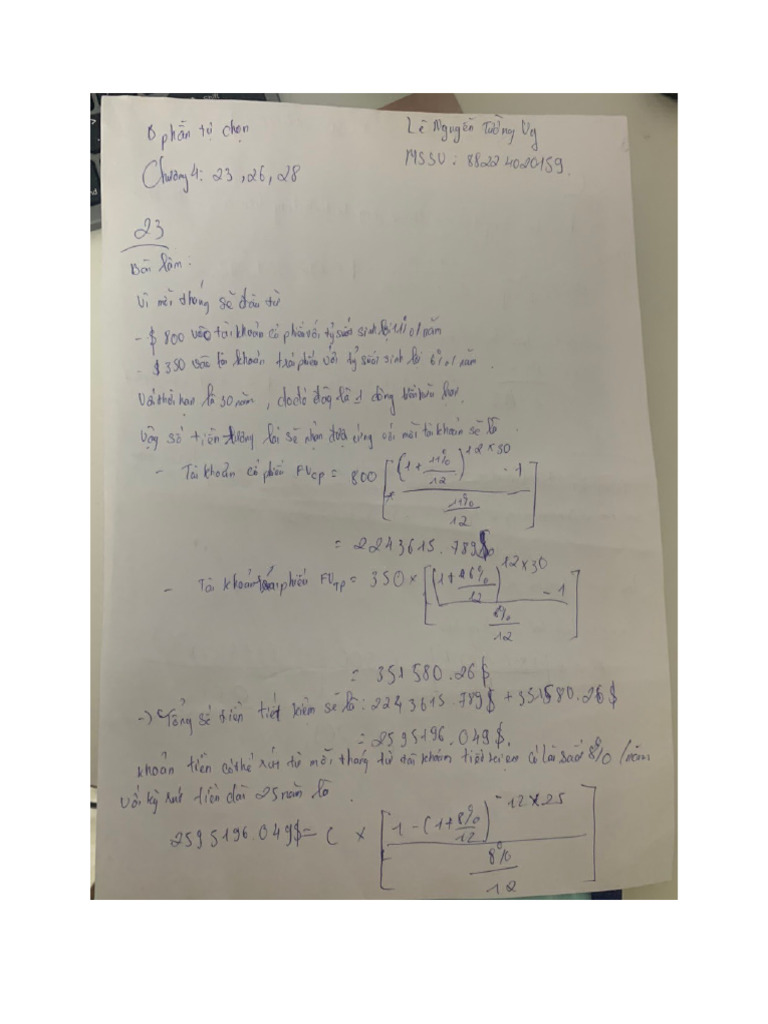 Ở phần tự chọn
Lê Nguyễn Tường Vy
MSSV: 88224020159.
Chương 4: 23, 26, 28
23
Bài làm:
Vì mỗi tháng sẽ đầu tư
- $800 vào tài khoản cổ phiếu với tỷ suất sinh lợi 11%/năm
- $350 vào tài khoản trái phiếu với tỷ suất sinh lợi 6%/năm.
Với thời hạn là 30 năm, do đó đây là 1 dòng tiền hữu hạn.
Vậy số tiền tương lai sẽ nhận được ứng với mỗi tài khoản sẽ là
- Tài khoản cổ phiếu FVCP = 800 [((1+11%/12)^12×30 - 1)/(11%/12)]
= 2243615.789$
- Tài khoản trái phiếu FVTP = 350 × [((1+6%/12)^12×30 - 1)/(6%/12)]
= 351580.26$
-> Tổng số tiền tiết kiệm sẽ là: 2243615.789$ + 351580.26$
= 2595196.049$.
Khoản tiền có thể rút từ mỗi tháng từ tài khoản tiết kiệm có lãi suất 8%/năm
với kỳ rút tiền dài 25 năm là.
2595196.049$ = C × [(1-(1+8%/12)^-12×25)/(8%/12)]